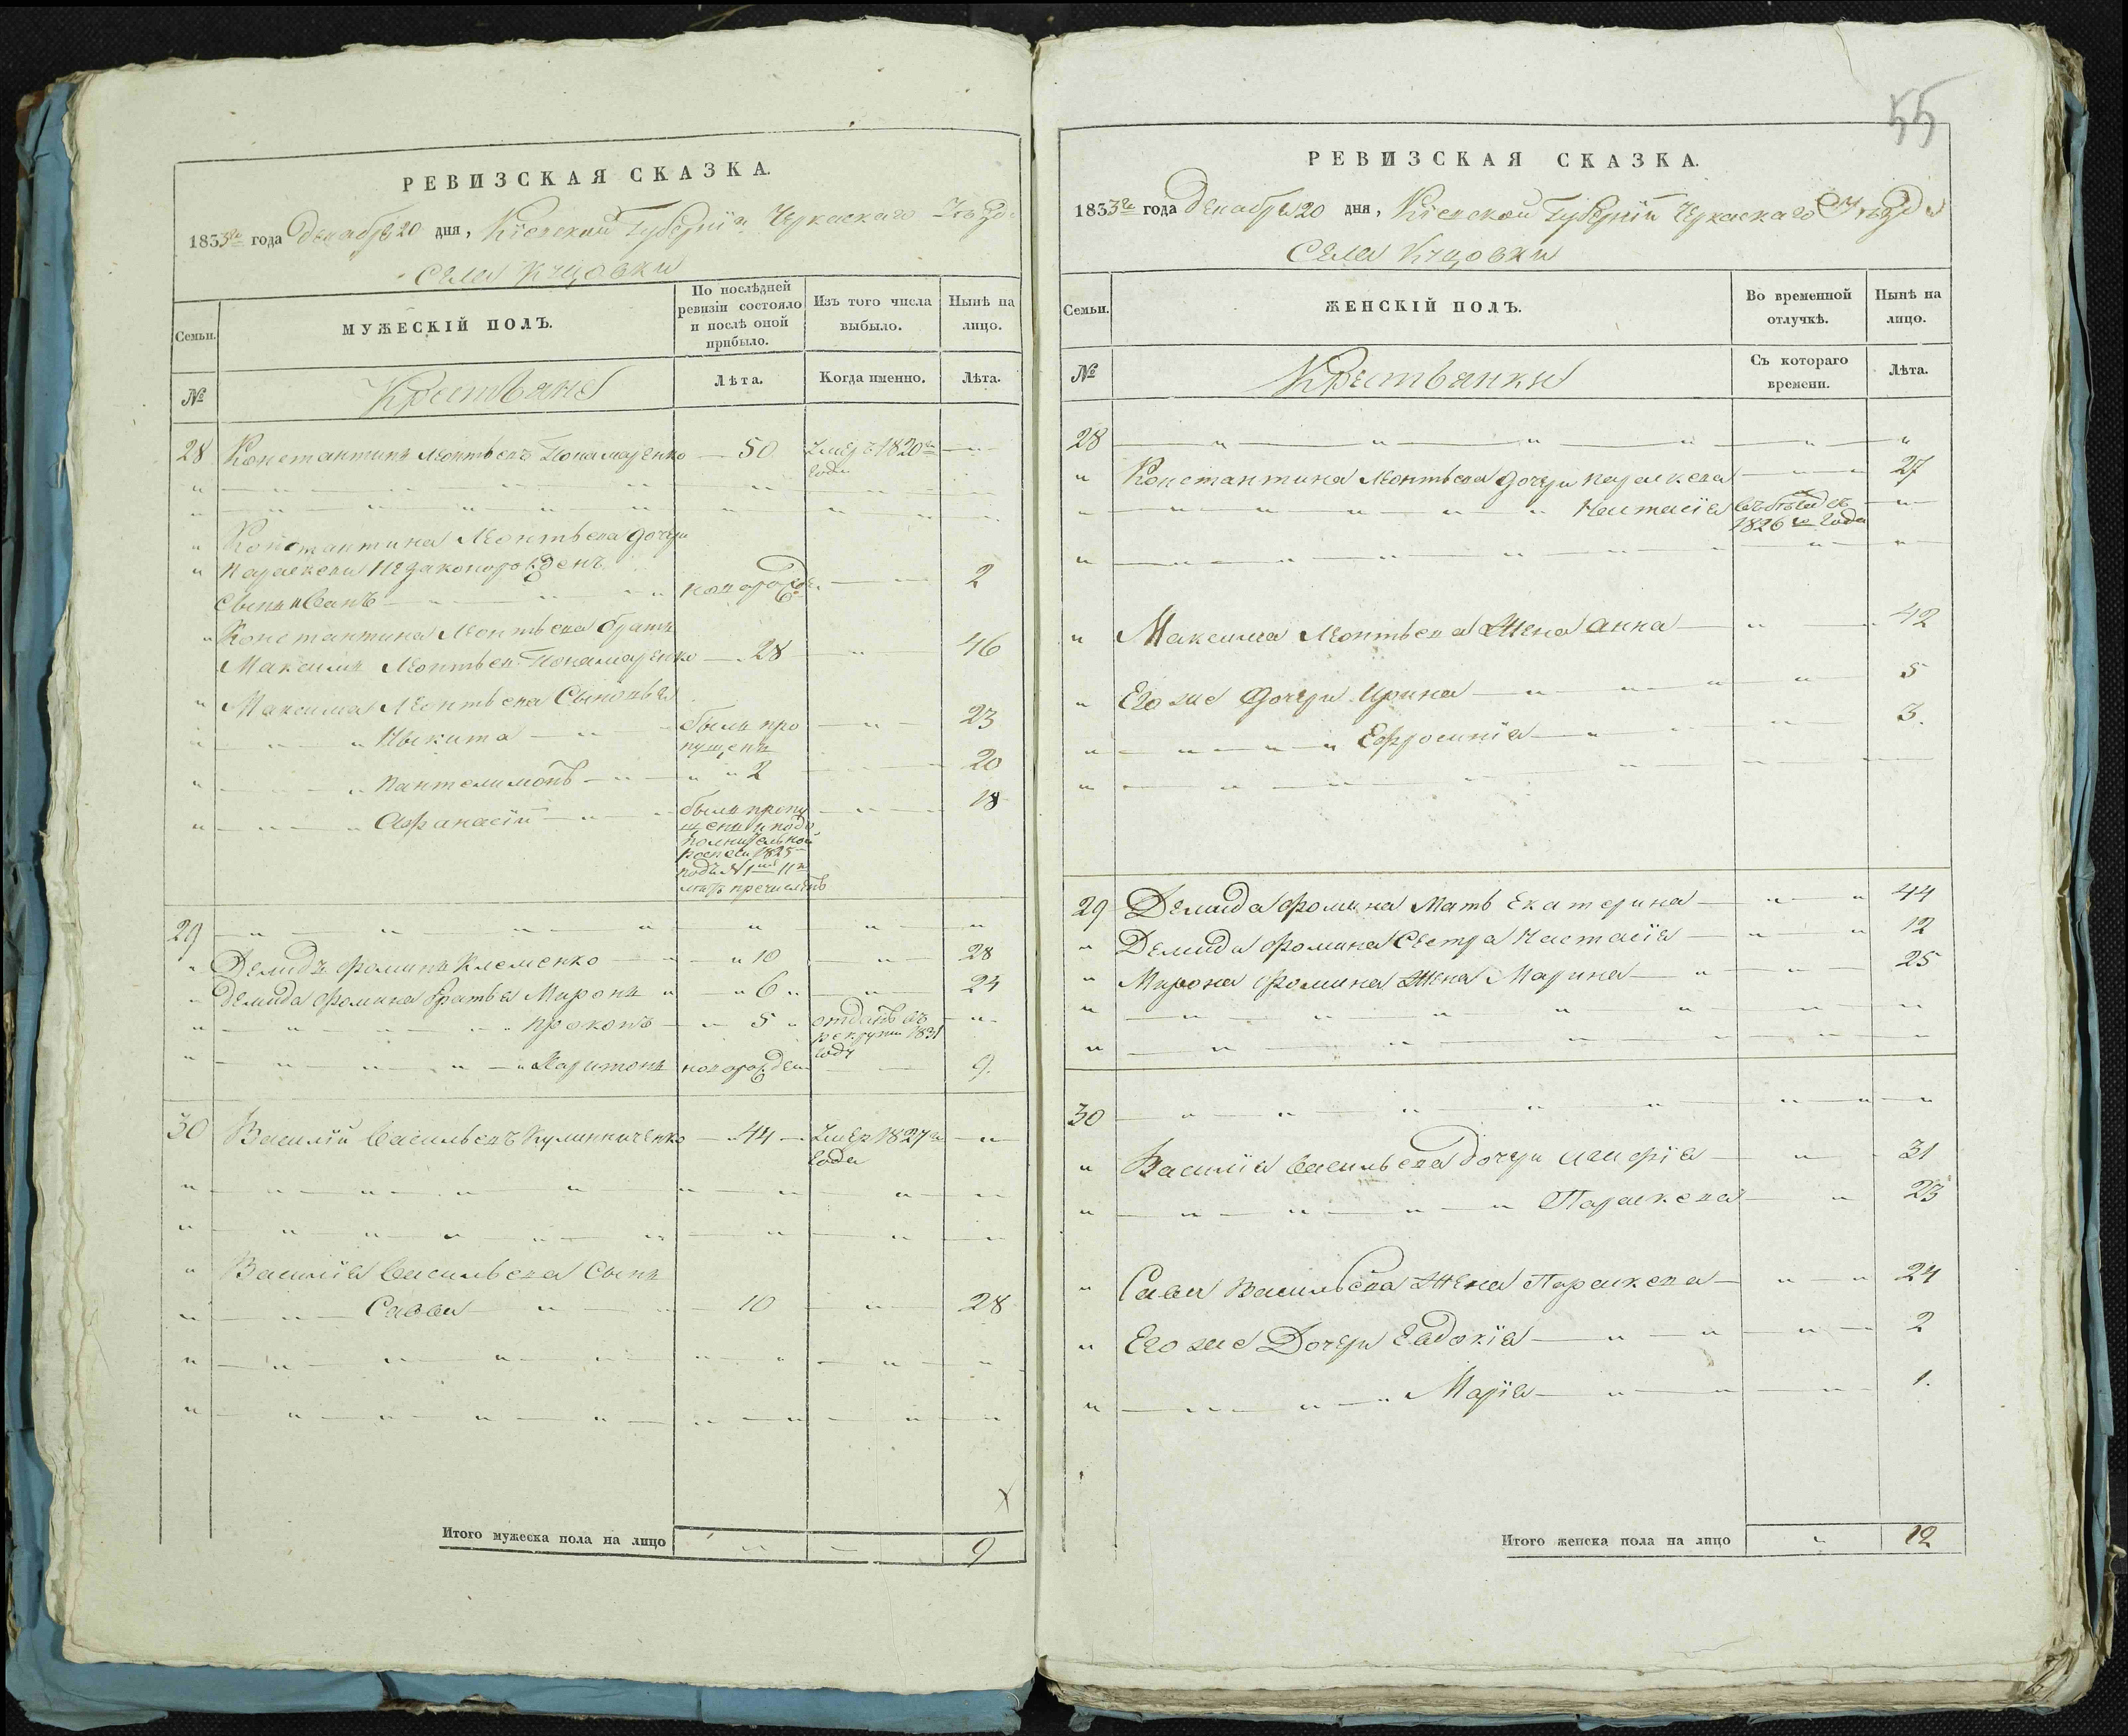 РЕВИЗСКАЯ СКАЗКА.
1833го года Декабря 20 дня, Кіевской Губерніи Черкаскаго Уезда
Села Куцовки
Семьи. МУЖЕСКІЙ ПОЛЪ. По послѣдней ревизіи состояло и послѣ оной прибыло. Изъ того числа выбыло. Нынѣ на лицо.
№ Крестьяне Лѣта. Когда именно. Лѣта.
28 Константинъ Леонтьевъ Понамаренко 50 Умеръ 1820го
года
Константина Леонтьева дочери
Параскеви незаконорожденъ
сынъ Иванъ новорожде. 2
Константина Леонтьева братъ
Максимъ Леонтьев Понамаренко 28 46
Максима Леонтьева Сыновья
Никита былъ про 23
пущенъ
Пантелимонъ 2 20
Афанасій былъ пропу 18
щенъ и по до
полнительной
росписи 1825
подъ № 11
летъ пречисленъ
29
Демидъ Фоминъ Клеменко 10 28
Демида Фомина братья Миронъ 6 24
Прокопъ 5 отданъ въ
рекруты 1831
году
Харитонъ новорожден 9.
30 Василій Васильевъ Кулиниченко 44 Умер 1827го
года
Василія Васильева Сынъ
Савва 10 28
Х
Итого мужеска пола на лицо 9
55
РЕВИЗСКАЯ СКАЗКА.
1833го года Декабря 20 дня, Кіевской Губерніи Черкаскаго Уезда
Села Куцовки
Семьи. ЖЕНСКІЙ ПОЛЪ. Во временной отлучкѣ. Нынѣ на лицо.
№ Крестьянки Съ котораго времени. Лѣта.
28
Константина Леонтьева дочери Параскева 27
Настасія въ бегах съ
1826го года
Максима Леонтьева Жена Анна 42
Его же дочери Ирина 5
Ефросинія 3.
29 Демида Фомина Мать Екатерина 44
Демида Фомина Сестра Настасія 12
Мирона Фомина Жена Марина 25
30
Василія Васильева дочери 31
Параскева 23
Савы Васильева Жена Параскева 24
Его же Дочери Евдокія 2
Марія 1.
Итого женска пола на лицо 12